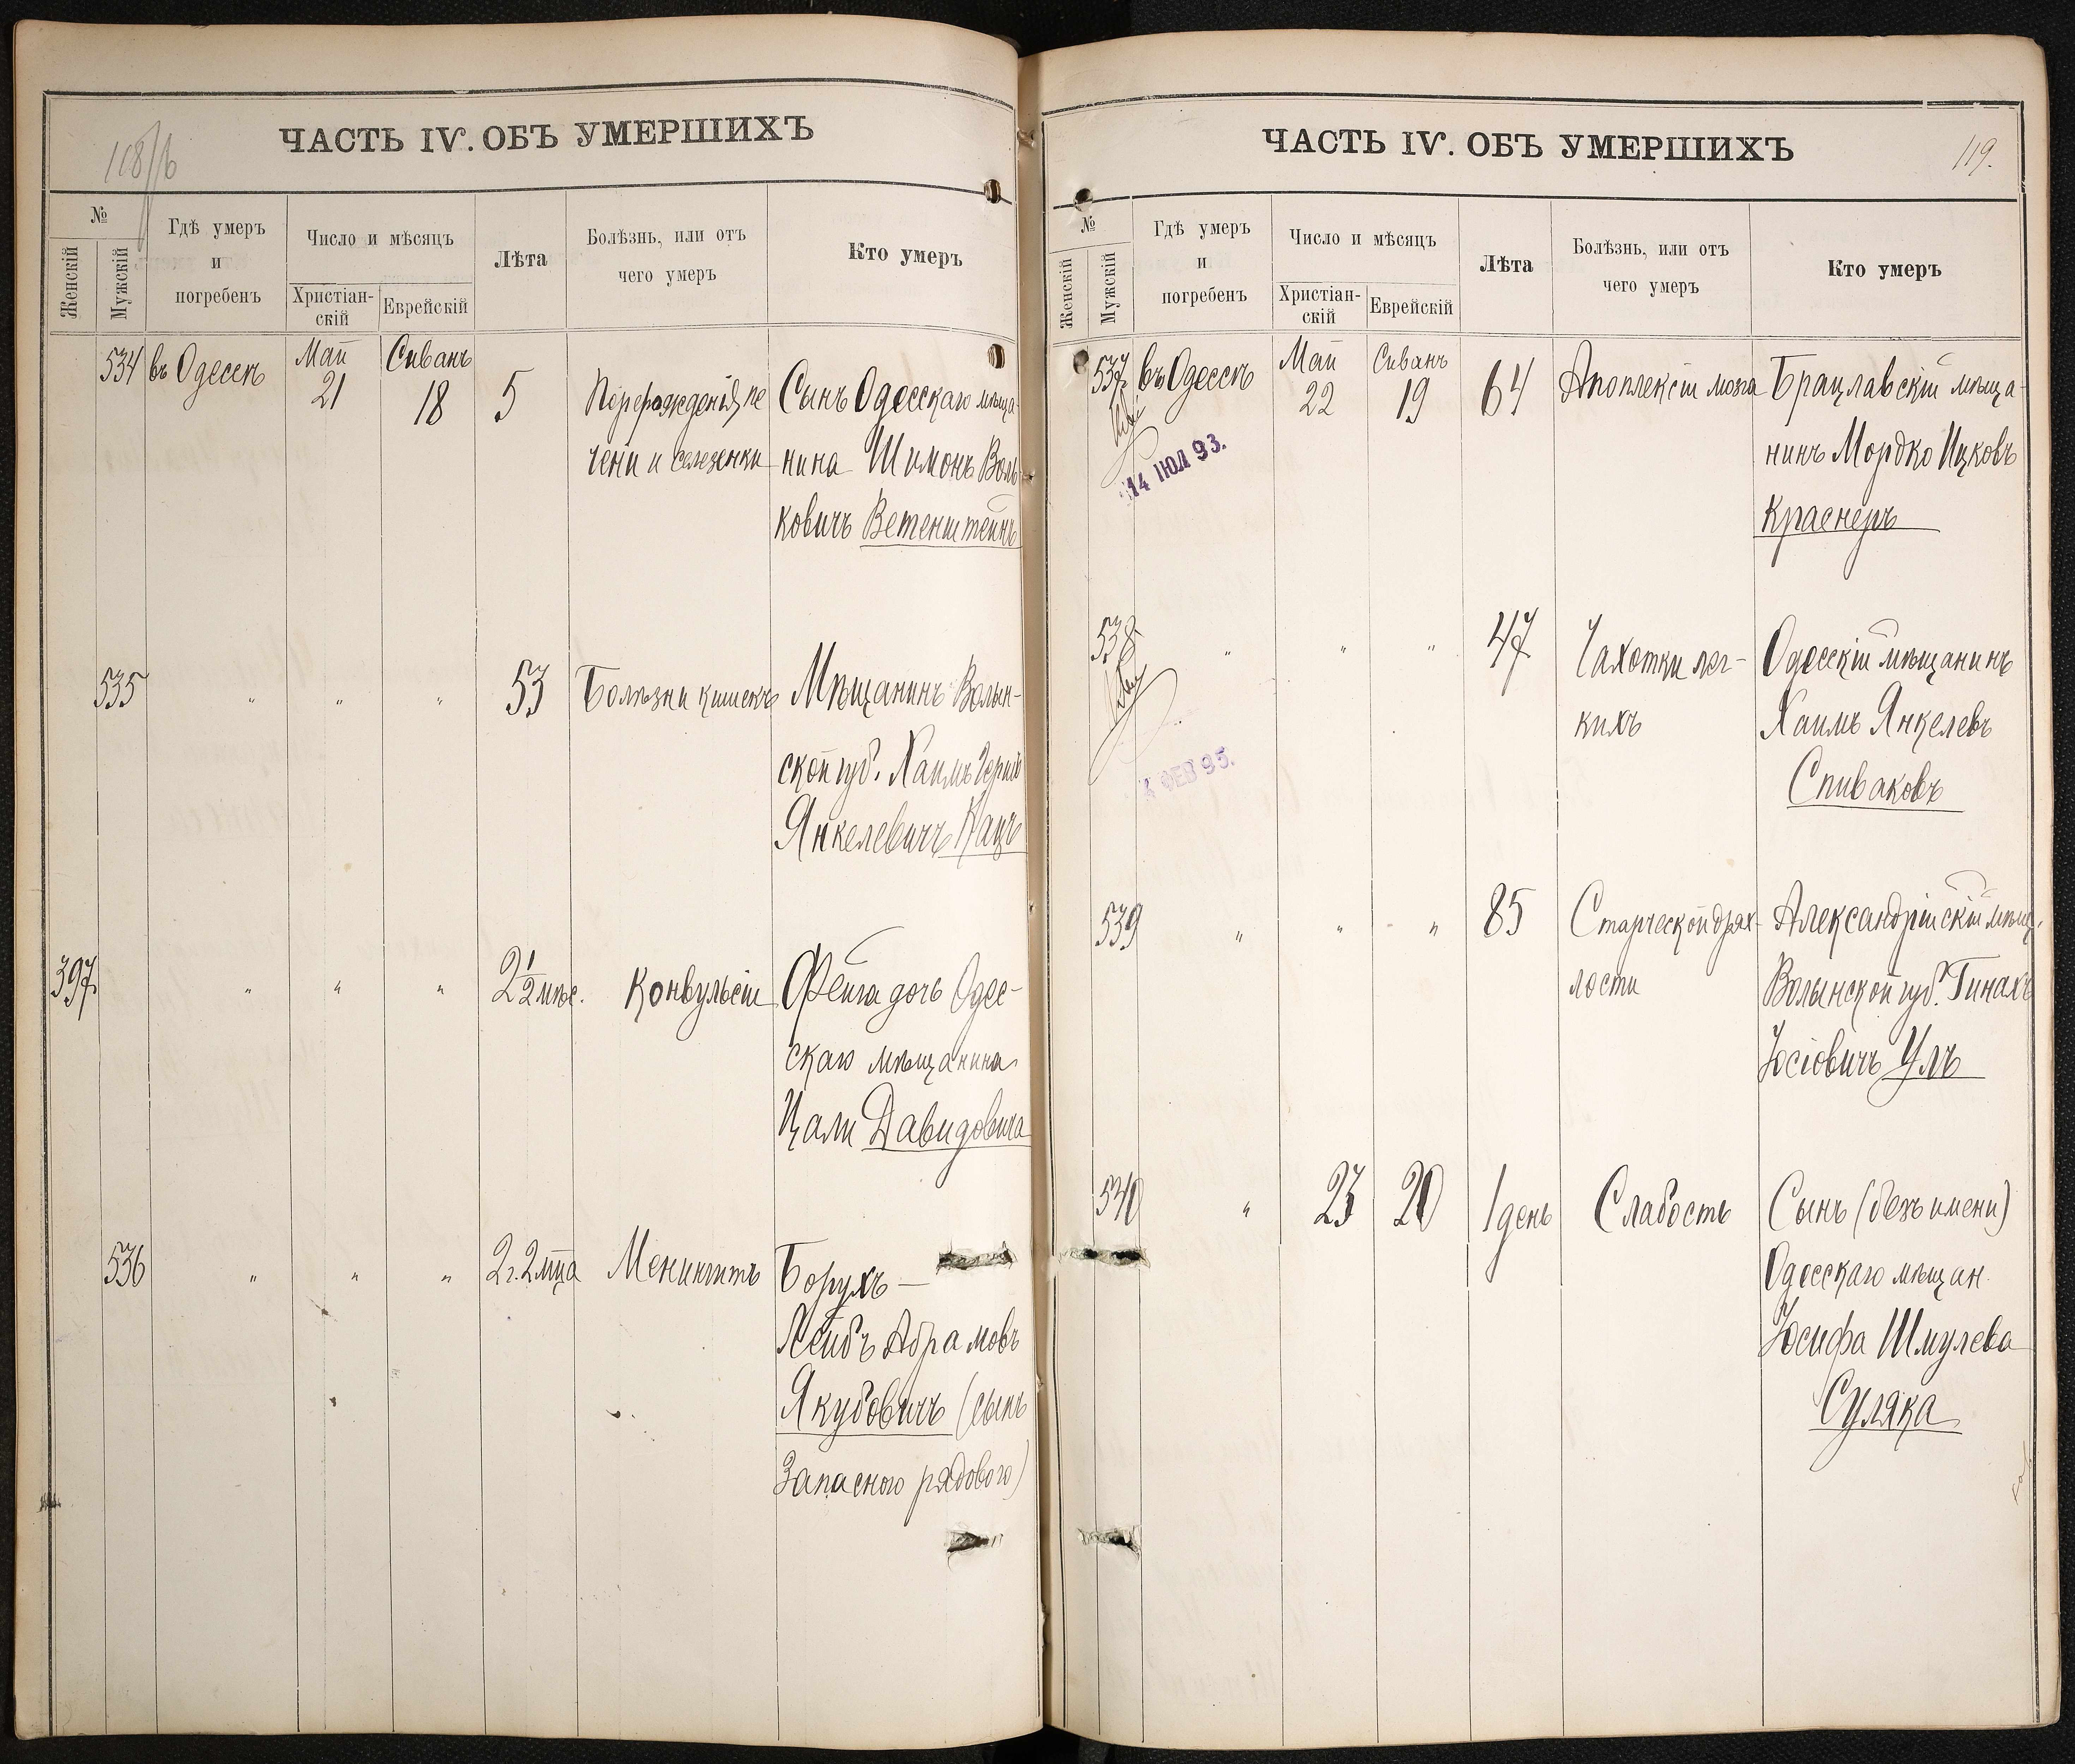 118/б
ЧАСТЬ IV. ОБЪ УМЕРШИХЪ
№
Женскій
Мужскій
Гдѣ умеръ
и
погребенъ
Число и мѣсяцъ
Христіан-
скій
Еврейскій
Лѣта
Болѣзнь, или отъ
чего умеръ
Кто умеръ
534 въ Одессѣ Май 21 Сиванъ 18 5 Перерожденія пе Сынъ Одесскаго мѣща-
чени и селезенки нина Шимонъ Воль-
ковичъ Ветенштейнъ
535 " " " 53 Болѣзни кишекъ Мѣщанинъ Волын-
ской губ. Хаимъ Герш
Янкелевичъ Кацъ
397 " " " 2 1/2 мѣс. Конвульсіи Фейга дочь Одес-
скаго мѣщанина
Цали Давидовича
536 " " " 2 г. 2 мца Менингитъ Борухъ —
Лейбъ Абрамовъ
Якубовичъ (сынъ
Запасного рядового)
119.
ЧАСТЬ IV. ОБЪ УМЕРШИХЪ
№
Женскій
Мужскій
Гдѣ умеръ
и
погребенъ
Число и мѣсяцъ
Христіан-
скій
Еврейскій
Лѣта
Болѣзнь, или отъ
чего умеръ
Кто умеръ
537 въ Одессѣ Май 22 Сиванъ 19 64 Апоплексіи мозга Брацлавскій мѣща-
нинъ Мордко Ицковъ
14 ІЮЛ 93.
Краснеръ
538 " " " 47 Чахотки лег- Одесскій мѣщанинъ
кихъ Хаимъ Янкелевъ
ФЕВ 95.
Спиваковъ
539 " " " 85 Старческой дрях- Александрійскій мѣщ.
лости Волынской губ. Гинахъ
Іосіовичъ Улъ
540 " 23 20 1 день Слабость Сынъ (безъ имени)
Одесскаго мѣщан.
Іосифа Шмулева
Суляка